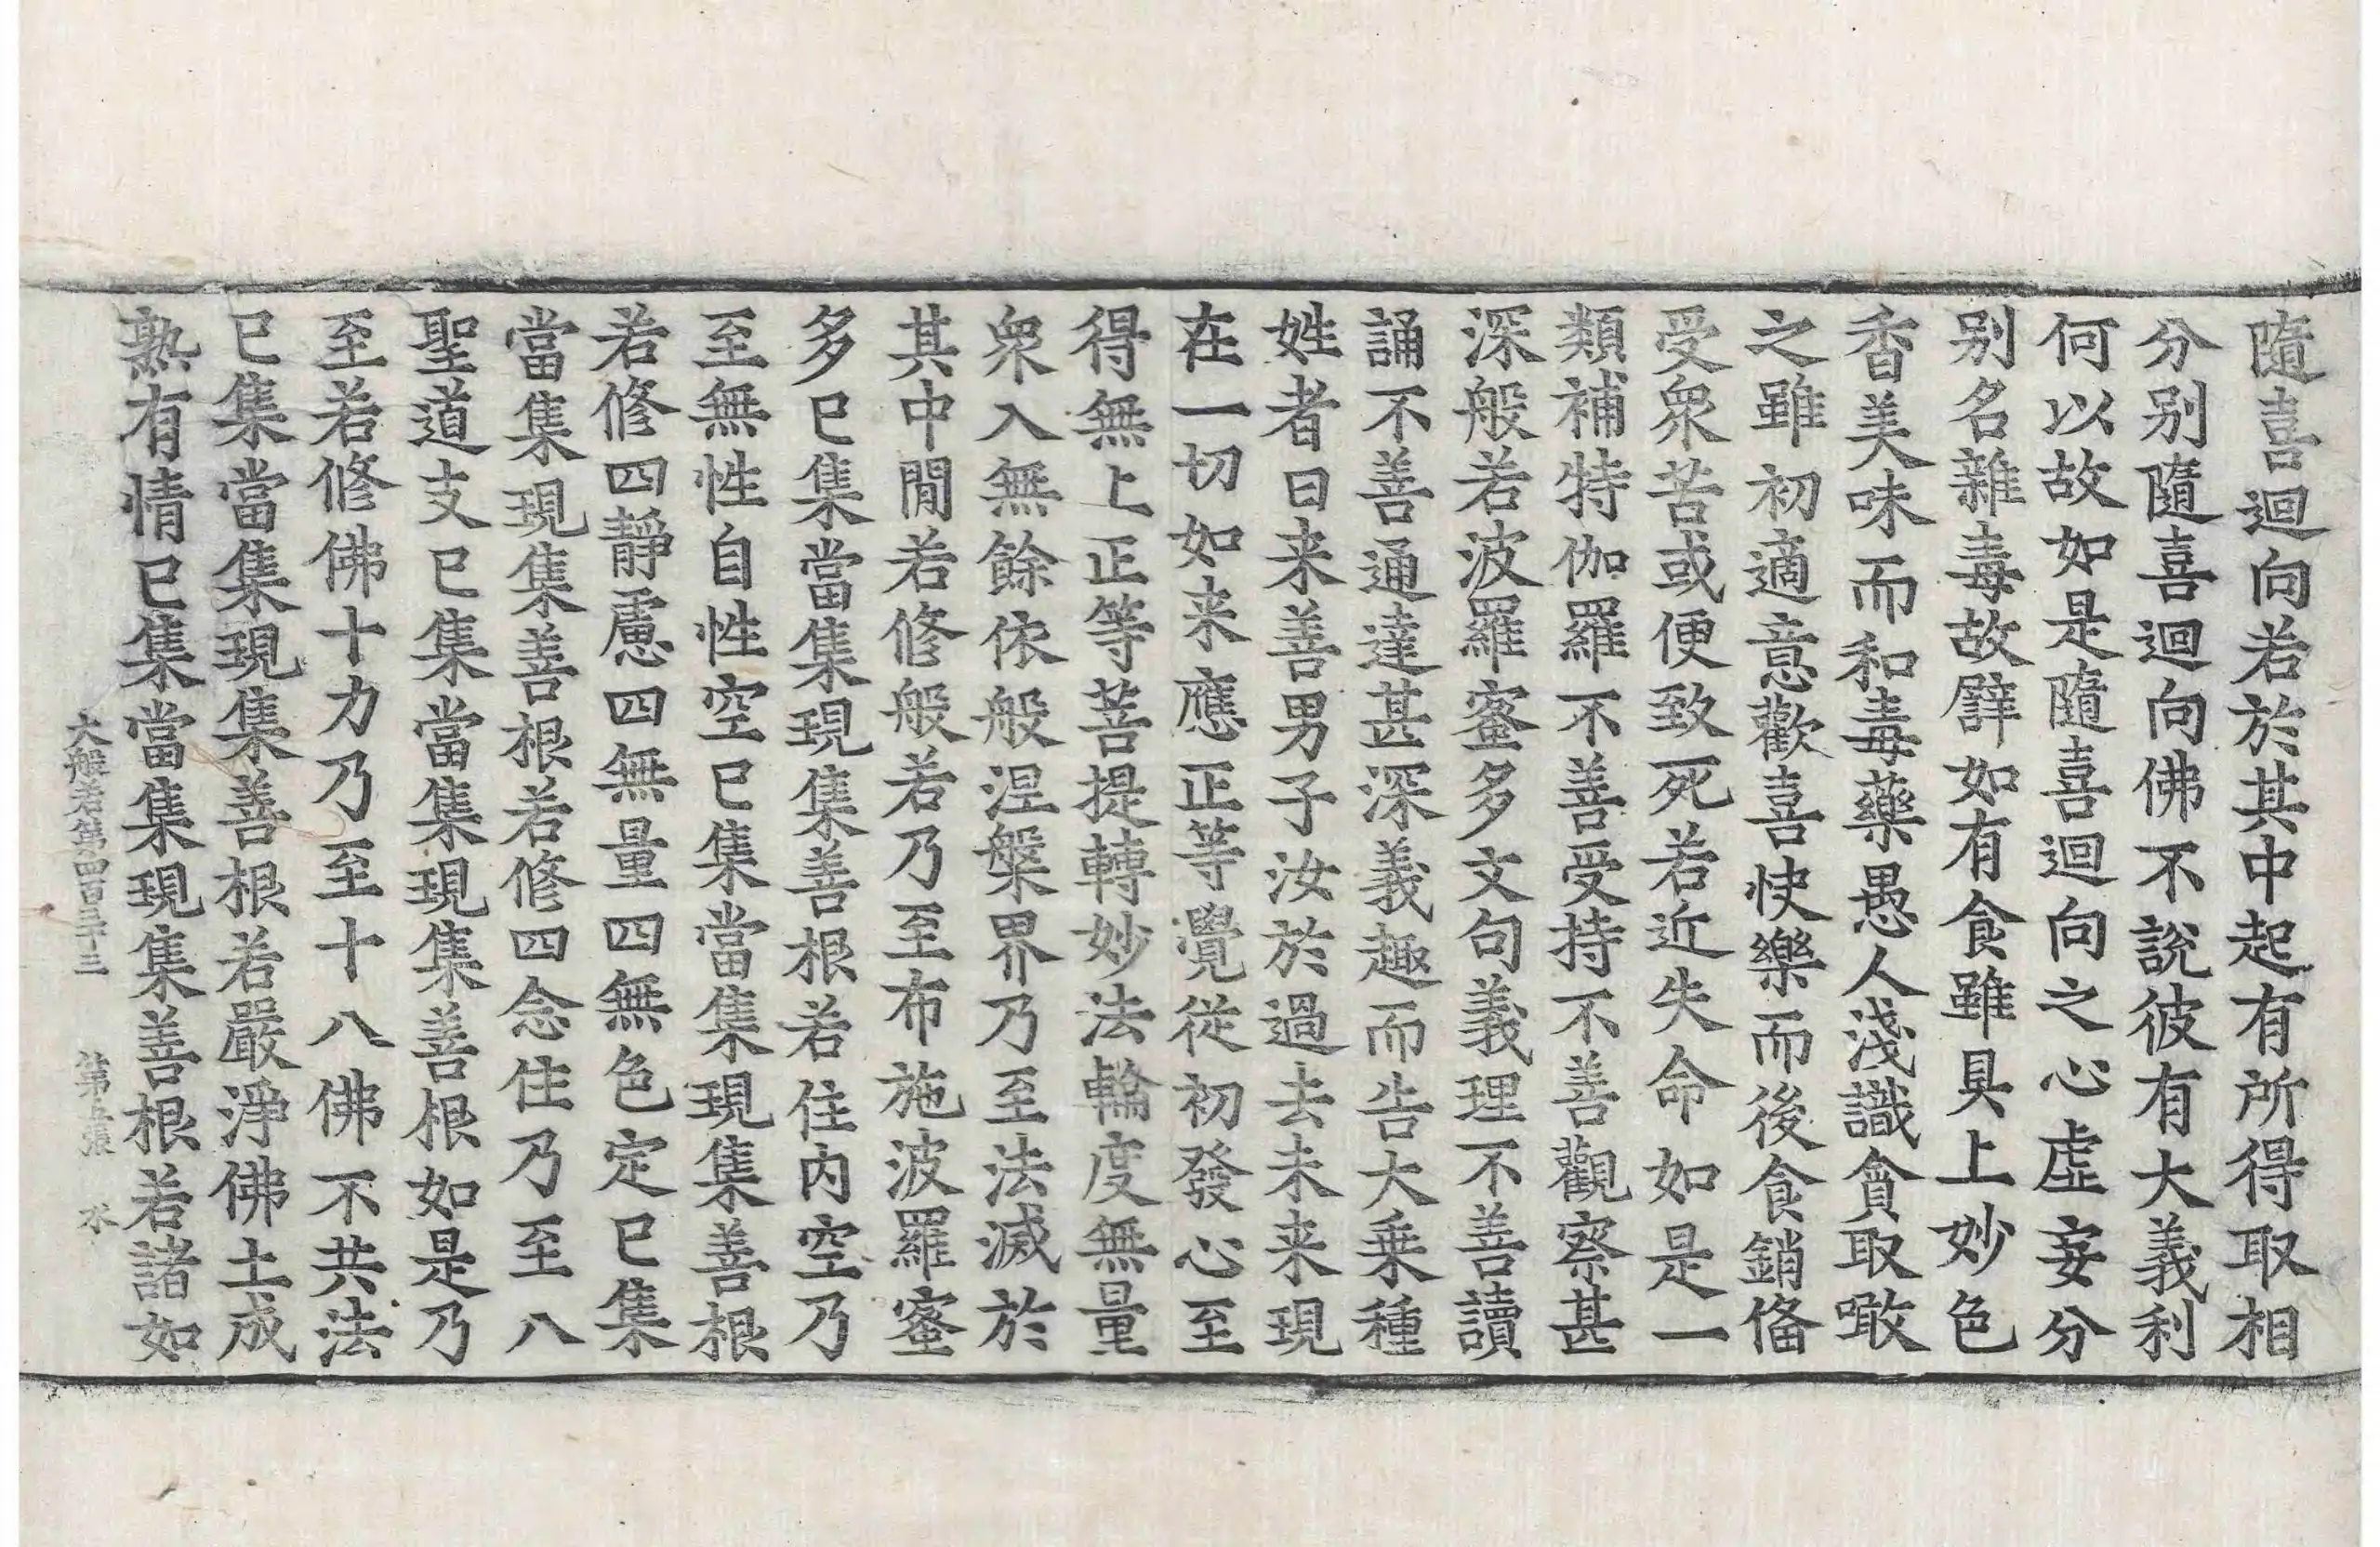 隨喜迴向若於其中起有所得取相
分別隨喜迴向佛不說彼有大義利
何以故如是隨喜迴向之心虛妄分
別名雜毒故譬如有食雖具上妙色
香美味而和毒藥愚人淺識貪取噉
之雖初適意歡喜快樂而後食銷俻
受衆苦或便致死若近失命如是一
類補特伽羅不善受持不善觀察甚
深般若波羅蜜多文句義理不善讀
誦不善通達甚深義趣而告大乗種
姓者曰来善男子汝於過去未来現
在一切如来應正等覺從初發心至
得無上正等菩提轉妙法輪度無量
衆入無餘依般涅槃界乃至法滅於
其中閒若修般若乃至布施波羅蜜
多已集當集現集善根若住內空乃
至無性自性空已集當集現集善根
若修四靜慮四無量四無色定已集
當集現集善根若修四念住乃至八
聖道支已集當集現集善根如是乃
至若修佛十力乃至十八佛不共法
已集當集現集善根若嚴淨佛土成
熟有情已集當集現集善根若諸如
大般若第四百三十三 第五張 水